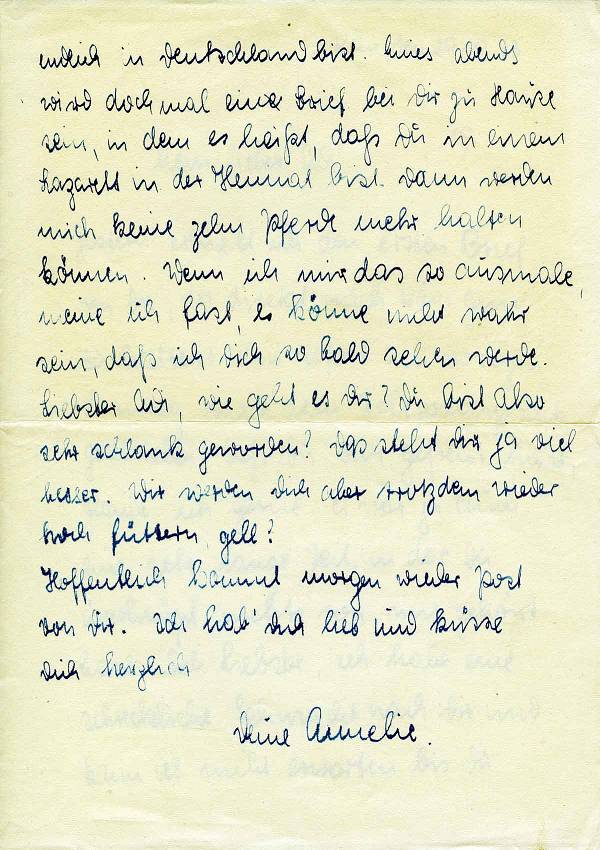 endlich in Deutschland bist. Eines abends
wird doch mal ein Brief bei Dir zu Hause
sein, in dem es heißt, daß Du in einem
Lazarett in der Heimat bist. Dann werden
mich keine zehn Pferde mehr halten
können. Wenn ich mir das so ausmale,
meine ich fast, es könne nicht wahr
sein, daß ich Dich so bald sehen werde.
Liebster, wie geht es Dir? Du bist also
sehr schlank geworden? Das steht Dir ja viel
besser. Wir werden Dich aber trotzdem wieder
hoch füttern, gell?
Hoffentlich kommt morgen wieder Post
von Dir. Ich hab' Dich lieb und küsse
Dich herzlich
Deine Annelie.